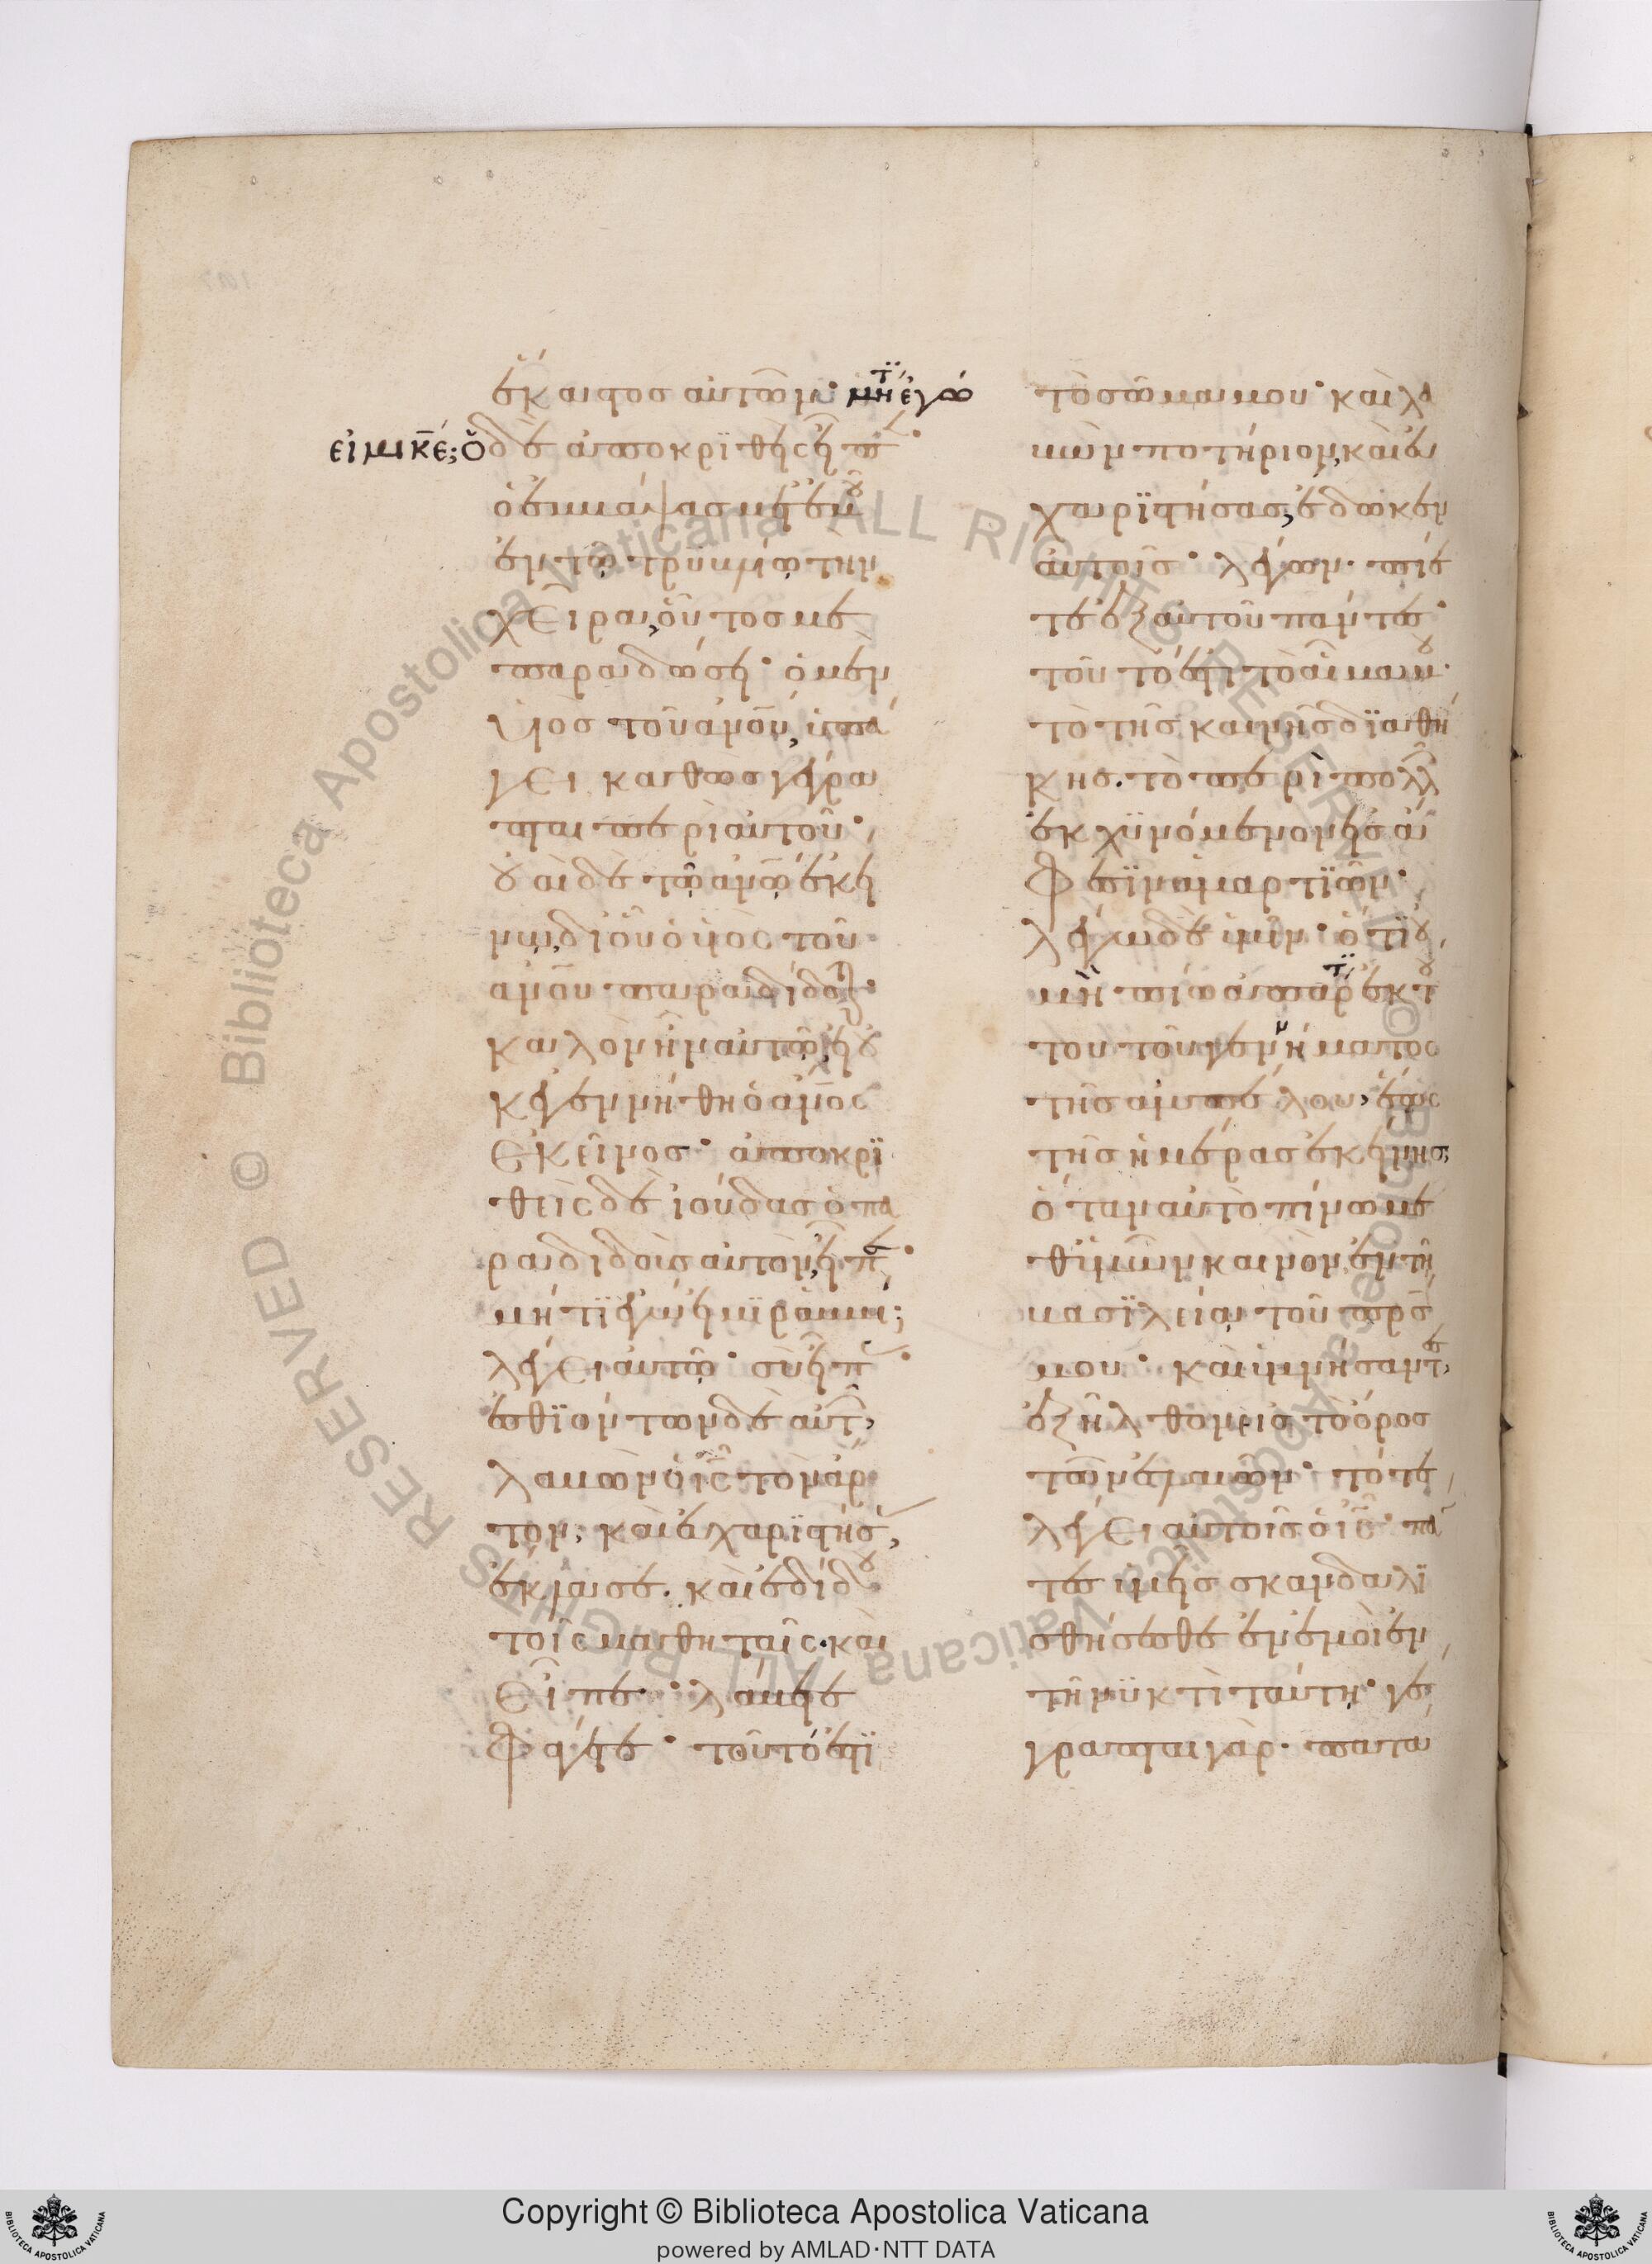 ἕκαστος αὐτῶν· μήτι ἐγώ
εἰμι κ̅ε̅; ὁ δὲ ἀποκριθεὶς εἶπεν·
ὁ ἐμβάψας μετ' ἐμοῦ
ἐν τῷ τρυβλίῳ τὴν
χεῖρα, οὗτός με
παραδώσει· ὁ μὲν
υἱὸς τοῦ ἀν̅ο̅υ̅, ὑπά
γει καθὼς γέγρα
πται περὶ αὐτοῦ·
οὐαὶ δὲ τῷ ἀν̅ῳ̅ ἐκεί
νῳ, δι' οὗ ὁ υἱὸς τοῦ
ἀν̅ο̅υ̅ παραδίδοται·
καλὸν ἦν αὐτῷ, εἰ οὐ
κ ἐγεννήθη ὁ ἄν̅ο̅ς̅
ἐκεῖνος· ἀποκρι
θεὶς δὲ ἰούδας ὁ πα
ραδιδοὺς αὐτὸν, εἶπεν·
μήτι ἐγώ εἰμι ῥαββί;
λέγει αὐτῷ· σὺ εἶπας·
ἐσθιόντων δὲ αὐτῶν,
λαβὼν ὁ ι̅ς̅ τὸν ἄρ
τον, καὶ εὐχαριστήσας,
ἔκλασε. καὶ ἐδίδου
τοῖς μαθηταῖς. καὶ
εἶπε· λάβετε
φάγετε· τοῦτό ἐστι
τὸ σῶμα μου· καὶ λα
βὼν ποτήριον, καὶ εὐ
χαριστήσας, ἔδωκεν
αὐτοῖς λέγων· πίε
τε ἐξ αὐτοῦ πάντες·
τοῦτό ἐστι τὸ αἷμα μου·
τὸ τῆς καινῆς διαθή
κης. τὸ περὶ πολλῶν
ἐκχυνόμενον εἰς ἄ
φεσιν ἁμαρτιῶν·
λέγω δὲ ὑμῖν· ὅτι οὐ
μὴ πίω ἀπάρτι ἐκ τού
του τοῦ γεννήματος
τῆς ἀμπέλου, ἕως
τῆς ἡμέρας ἐκείνης,
ὅταν αὐτὸ πίνω με
θ' ὑμῶν καινὸν ἐν τῇ
βασιλείᾳ τοῦ πρ̅ς̅
μου· καὶ ὑμνήσαντες,
ἐξῆλθον εἰς τὸ ὄρος
τῶν ἐλαιῶν· τότε
λέγει αὐτοῖς ὁ ι̅ς̅· πά
τες ὑμεῖς σκανδαλι
σθήσεσθε ἐν ἐμοὶ ἐν
τῇ νυκτὶ ταύτῃ· γέ
γραπται γάρ· πατά
Copyright © Biblioteca Apostolica Vaticana
powered by AMLAD·NTT DATA